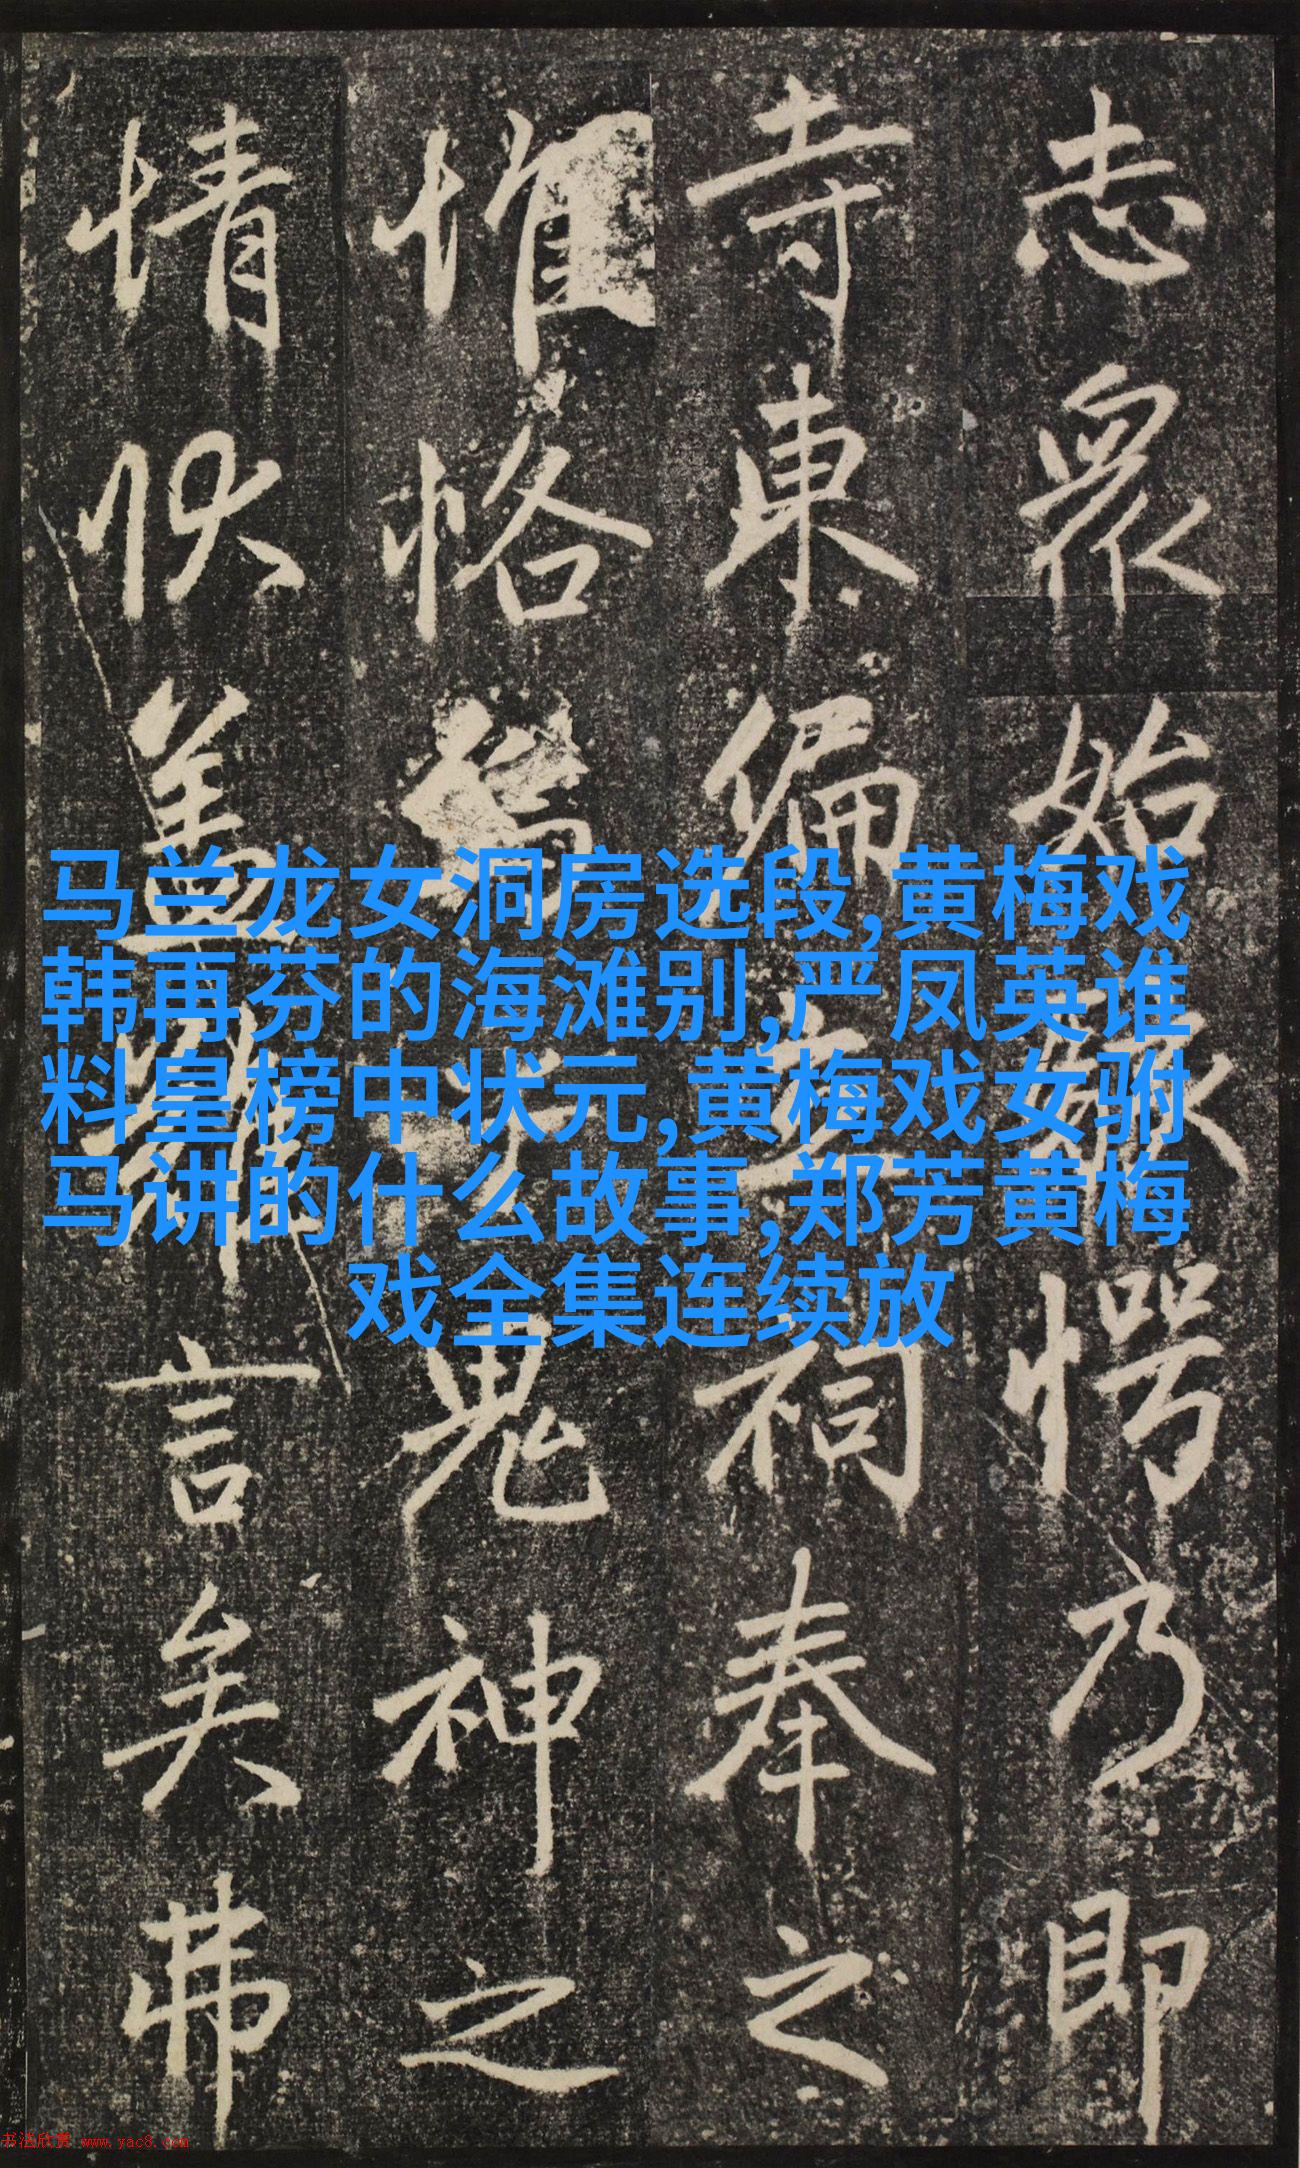 志眾始駭愕乃即
寺東偏立祠奉之
惟恪鬼神之
情狀蓋難言矣弗
马兰龙女洞房选段,黄梅戏
韩再芬的海滩别,严凤英谁
料皇榜中状元,黄梅戏女驸
马讲的什么故事,郑芳黄梅
戏全集连续放
书法欣赏 www.yac8.com